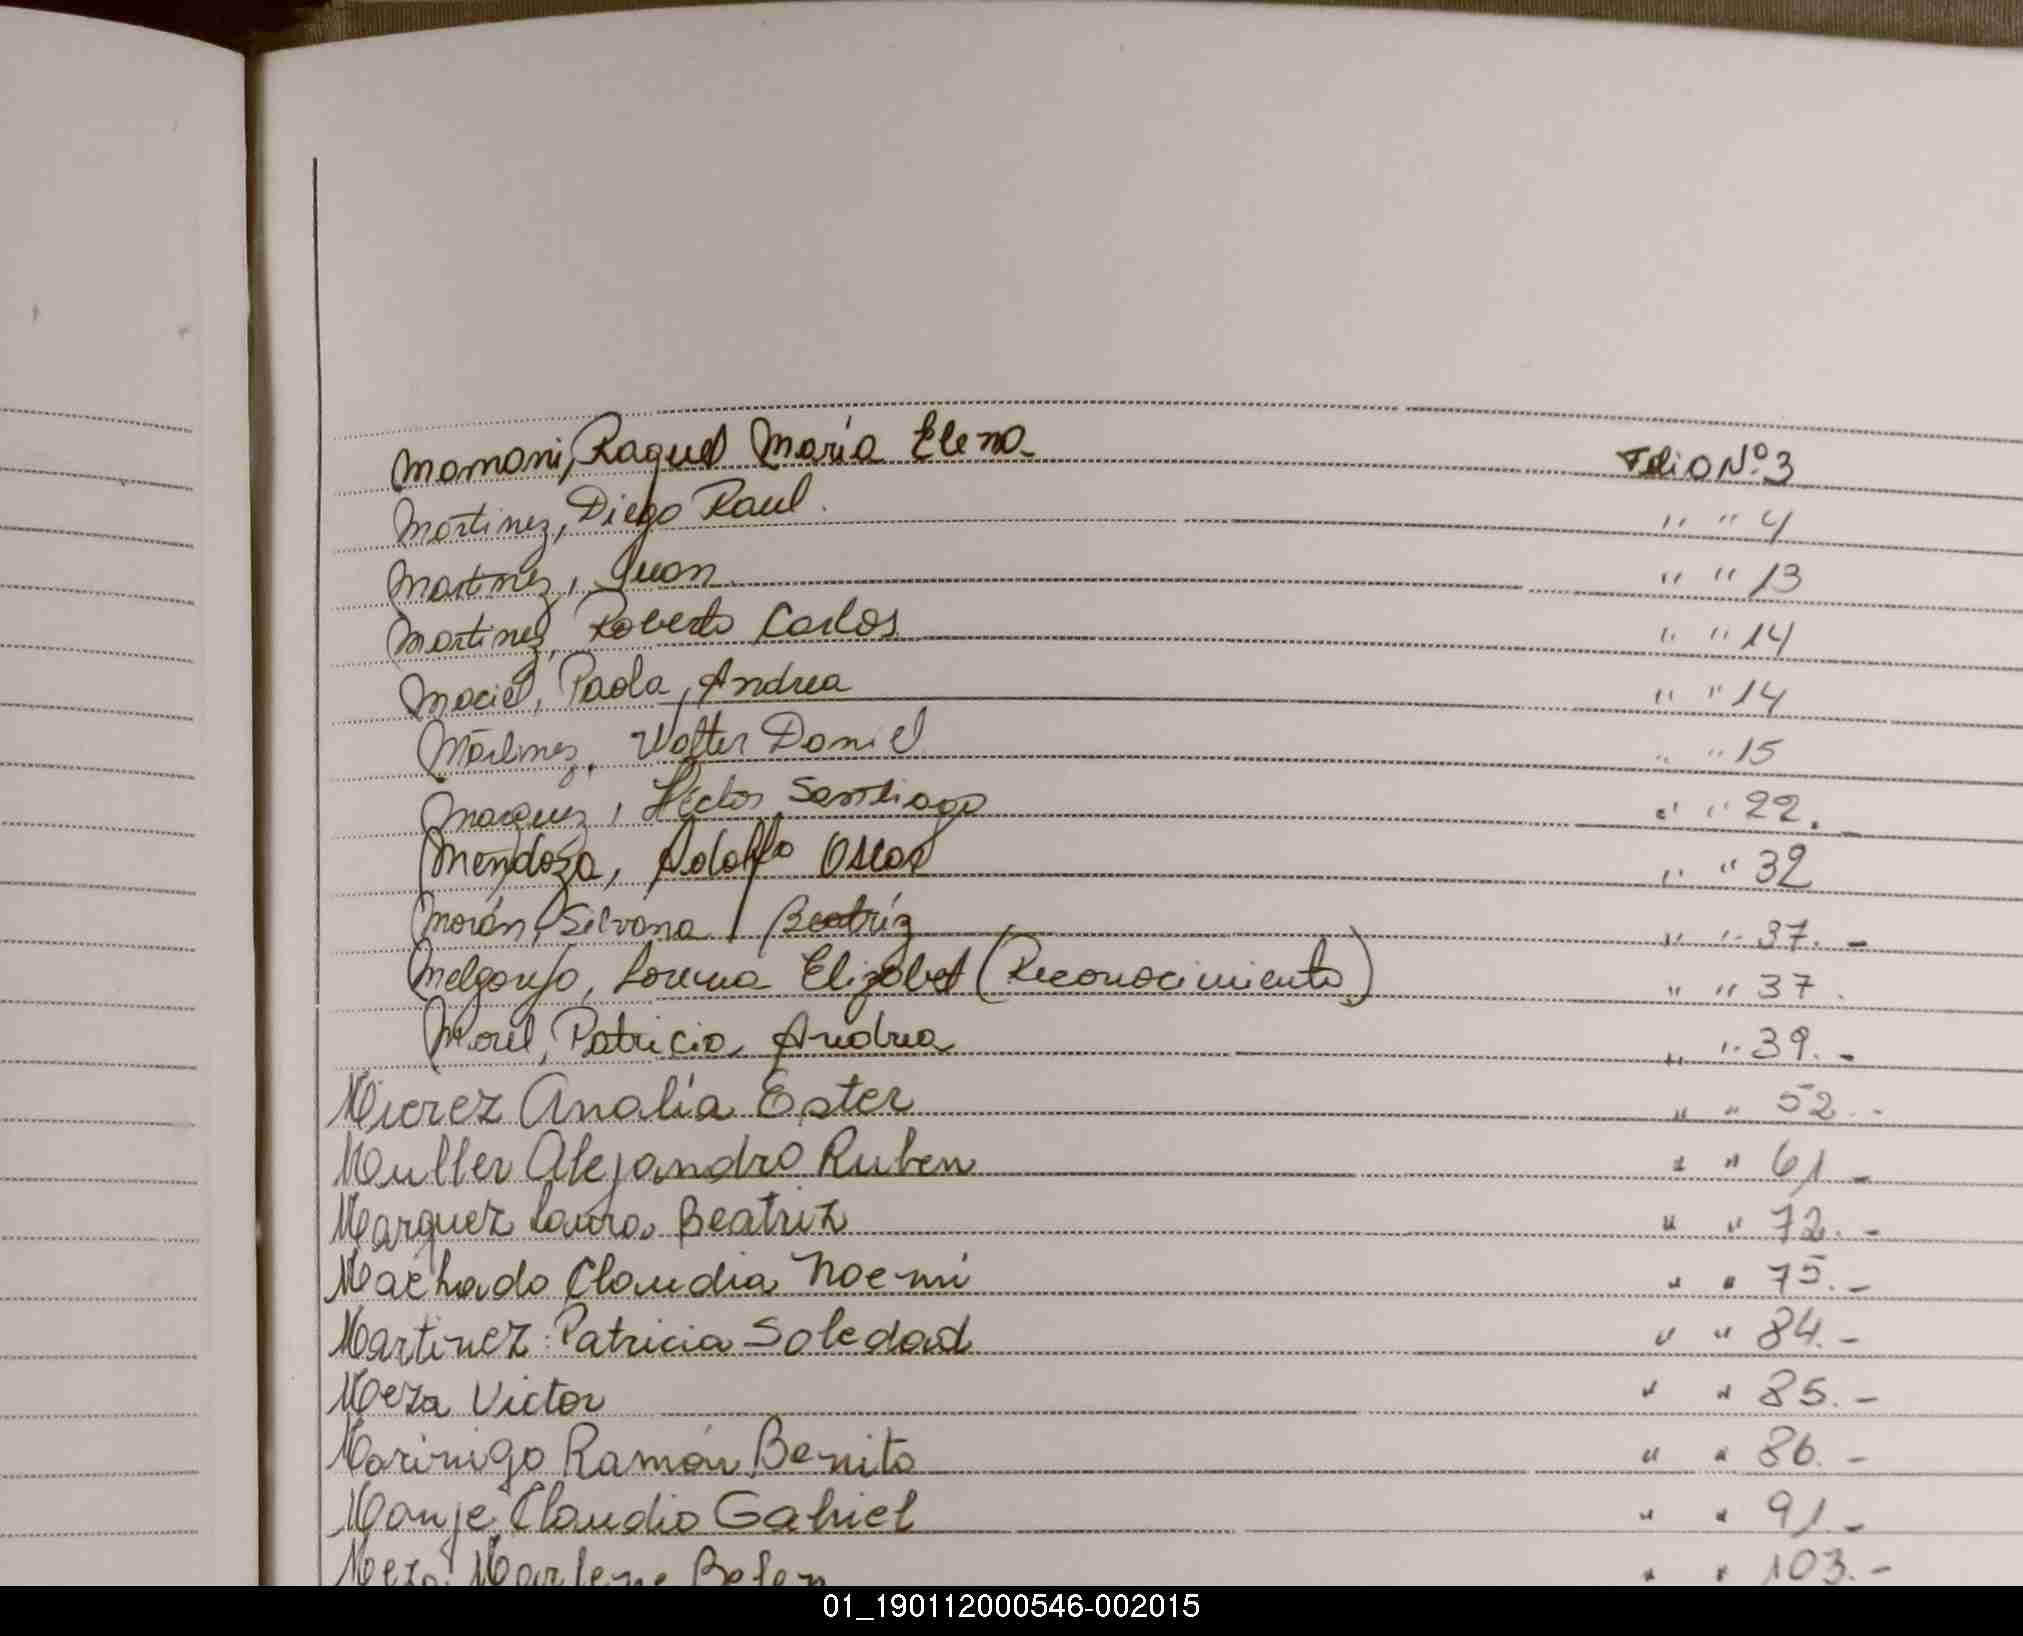 Mamani, Raquel María Elena Folio Nº 3
Martinez, Diego Raul. " " 4
Martinez, Juan. " " 13
Martinez, Roberto Carlos " " 14
Maciel, Paola, Andrea " " 14
Mártinez, Walter Daniel " " 15
Marquez, Héctor Santiago " " 22.-
Mendoza, Adolfo Oscar " " 32
Morán, Silvana Beatríz " " 37.-
Melgarejo, Lorena Elizabet (Reconocimiento) " " 37.
Morel, Patricia Andrea " " 39.-
Mierez Analía Ester " " 52.-
Muller Alejandro Ruben " " 61.-
Marquez Laura Beatriz " " 72.-
Machado Claudia Noemi " " 75.-
Martinez Patricia Soledad " " 84.-
Meza Victor " " 85.-
Marinigo Ramón Benito " " 86.-
Monje Claudio Gabriel " " 91.-
Meza Marlene Belen " " 103.-
01_190112000546-002015